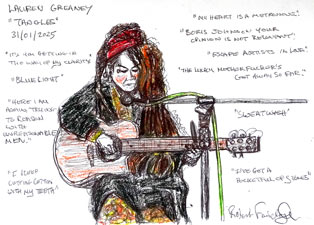 LAUREN GREANEY
"TANGLES"
31/01/2025
"IT'S YOU GETTING IN
THE WAY OF MY CLARITY"
"BLUE LIGHT"
"HERE I AM
AGAIN TRYING
TO REASON
WITH
UNREASONABLE
MEN."
"I KEEP
CUTTING
WITH MY TEETH"
"MY HEART IS A METRONOME."
"BORIS JOHNSON YOUR
OPINION IS NOT RELEVANT"
"ESCAPE ARTISTS IN LOVE"
"THE LUCKY MOTHER FUCKER'S
GOT AWAY SO FAR."
"SWEATWISH"
"I'VE GOT A
POCKETFUL OF STONES"
Robert